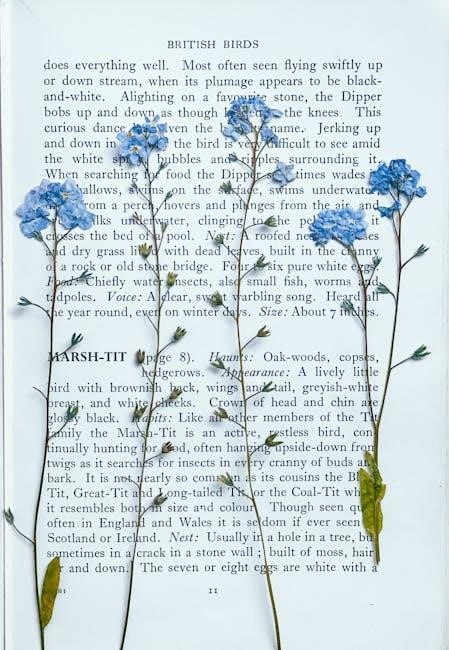 BRITISH BIRDS
does everything well. Most often seen flying swiftly up
or down stream, when its plumage appears to be black-
and-white. Alighting on a favourite stone, the Dipper
bobs up and down as though the knees. This
curious dance given the name. Jerking up
and down in the bird is very difficult to see amid
the white bubbles and surrounding it.
When searching food the Dipper sometimes wades
shallows, swims on the surface, swims underwater
from a perch hovers and plunges from the air, and
walks underwater, clinging to the it
crosses the bed of a pool. Nest: A roofed
and dry grass with dead leaves, built in the cranny
of a rock or old stone bridge. Four to six pure white eggs.
Food: Chiefly water insects, also small fish, worms and
tadpoles. Voice: A clear, sweet warbling song. Heard all
the year round, even on winter days. Size: About 7 inches.
MARSH-TIT (page 8). Haunts: Oak-woods, copses,
hedgerows. Appearance: A lively little
bird with brownish back, wings and tail, greyish-white
breast, and white cheeks. Crown of head and chin are
glossy black. Habits: Like all other members of the Tit
family the Marsh-Tit is an active, restless bird, con-
tinually hunting for food, often hanging upside-down from
twigs as it searches for insects in every cranny of buds and
bark. It is not nearly so common as its cousins the
Tit, Great-Tit and Long-tailed Tit, or the Coal-Tit
it resembles both in size and colour. Though seen
often in England and Wales it is seldom if ever seen
Scotland or Ireland. Nest: Usually in a hole in a tree, but
sometimes in a crack in a stone wall ; built of moss, hair
and down. The seven or eight eggs are white with a
11